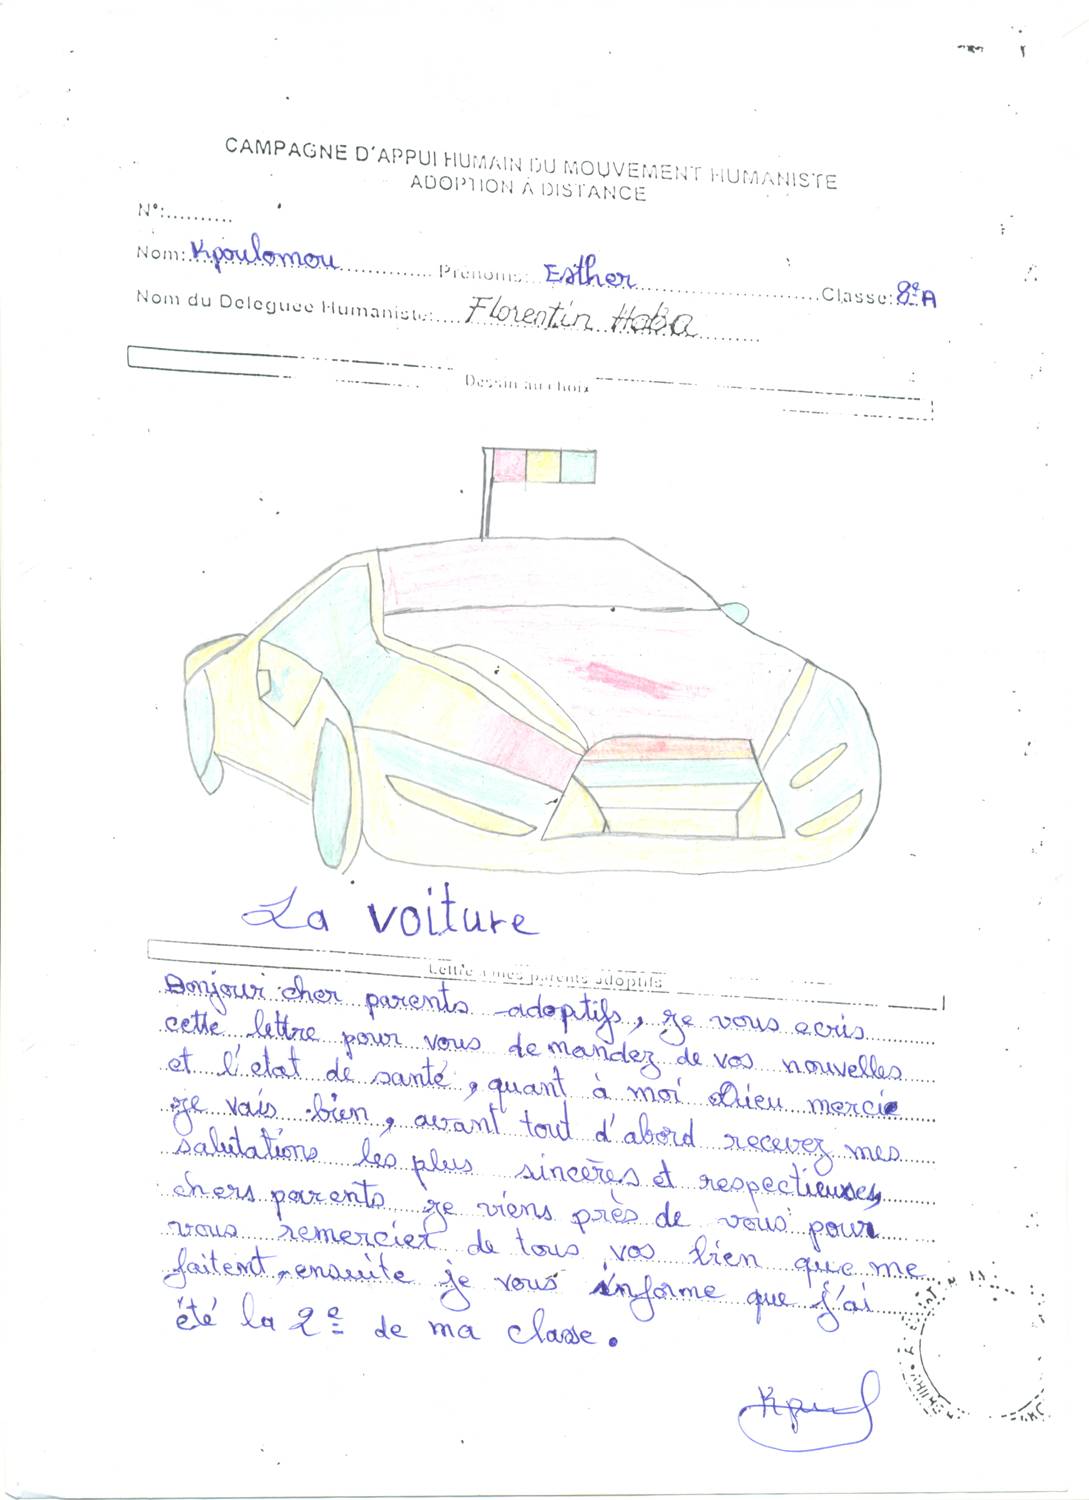 CAMPAGNE D'APPUI HUMAIN DU MOUVEMENT HUMANISTE
ADOPTION A DISTANCE
N°:..........
Nom: Kpoulomou Prénoms: Esther Classe: 8e A
Nom du Deleguee Humaniste: Florentin Haba
Dessin au choix
La voiture
Lettre à mes parents adoptifs
Bonjour cher parents adoptifs, je vous ecris
cette lettre pour vous demandez de vos nouvelles
et l'état de santé, quant à moi Dieu merci
je vais bien, avant tout d'abord recevez mes
salutations les plus sincères et respectieuses,
chers parents je viens près de vous pour
vous remercier de tous vos bien que me
faitent, ensuite je vous informe que j'ai
été la 2e de ma classe.